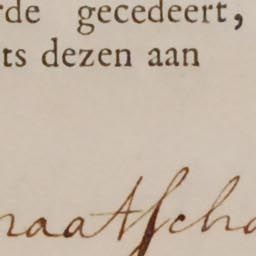 rde gecedeert,
ts dezen aan
raatscha